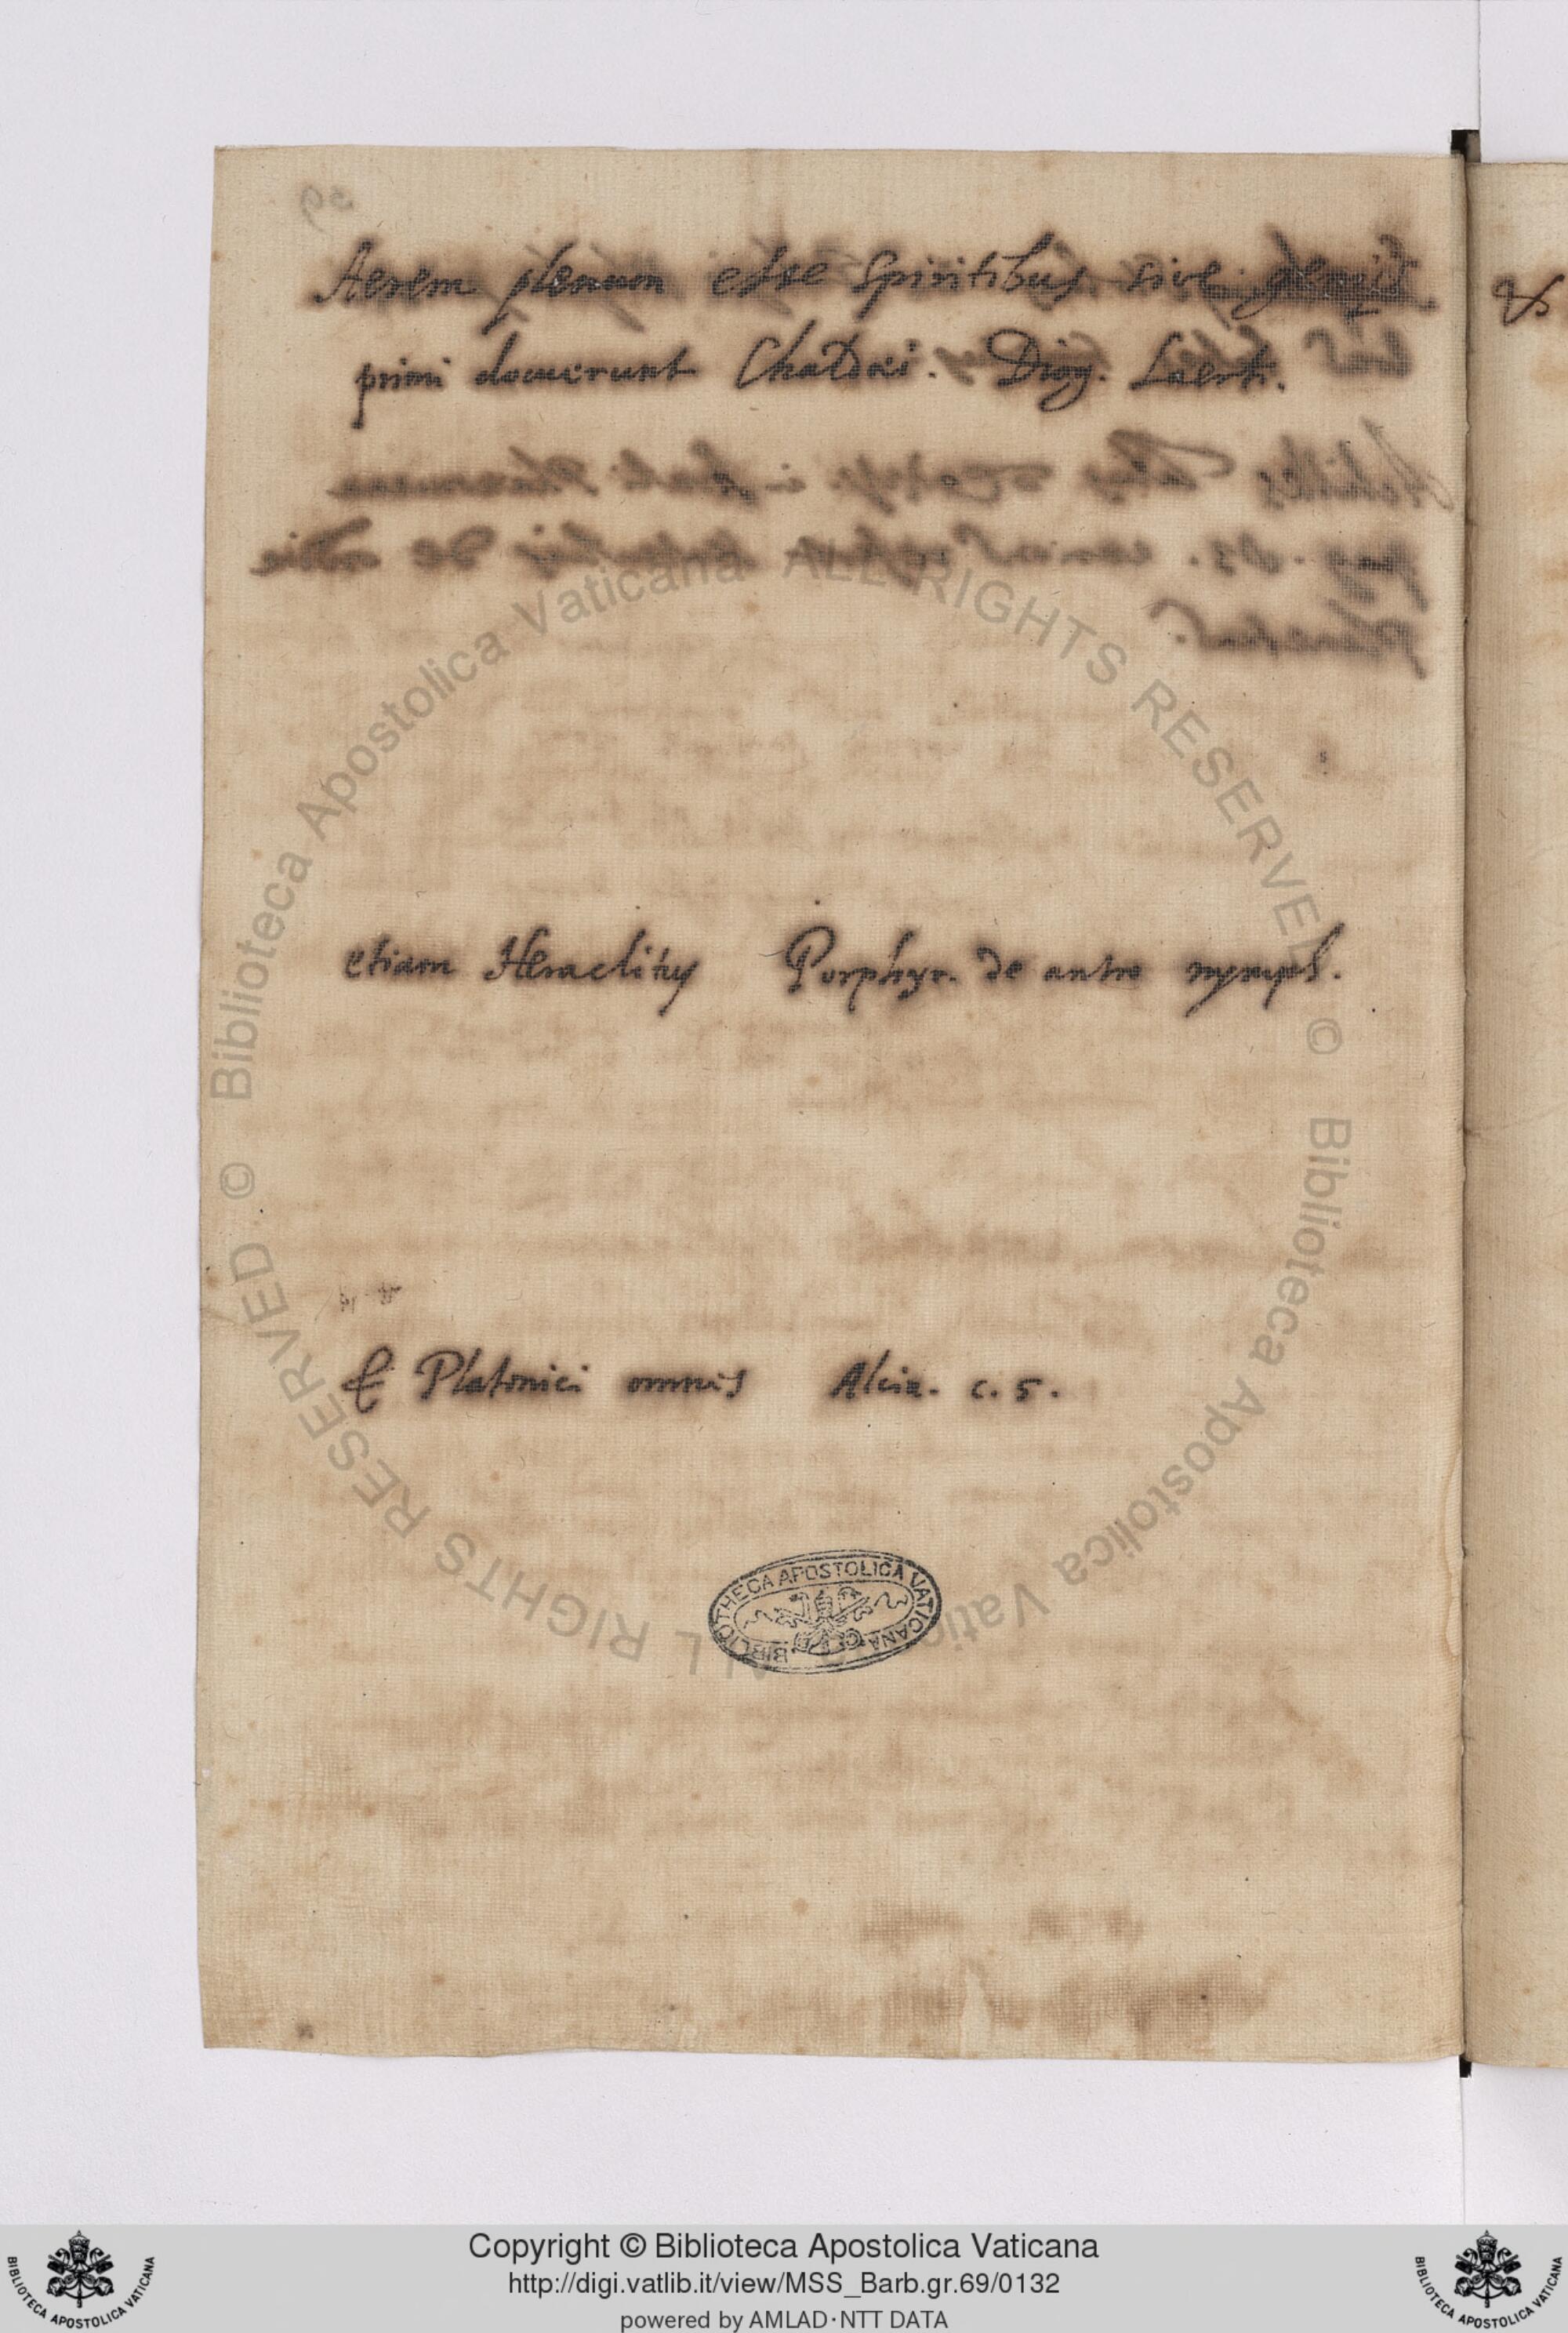 Aerem plenum esse Spiritibus sive geniis
primi docuerunt Chaldaei. Diog. Laert.
etiam Heraclitus Porphyr. de antro nymph.
& Platonici omnes Alcin. c. 5.
BIBLIOTHECA APOSTOLICA VATICANA
Copyright © Biblioteca Apostolica Vaticana
http://digi.vatlib.it/view/MSS_Barb.gr.69/0132
powered by AMLAD·NTT DATA
© Biblioteca Apostolica Vaticana ALL RIGHTS RESERVED
© Biblioteca Apostolica Vaticana ALL RIGHTS RESERVED
BIBLIOTECA APOSTOLICA VATICANA
BIBLIOTECA APOSTOLICA VATICANA